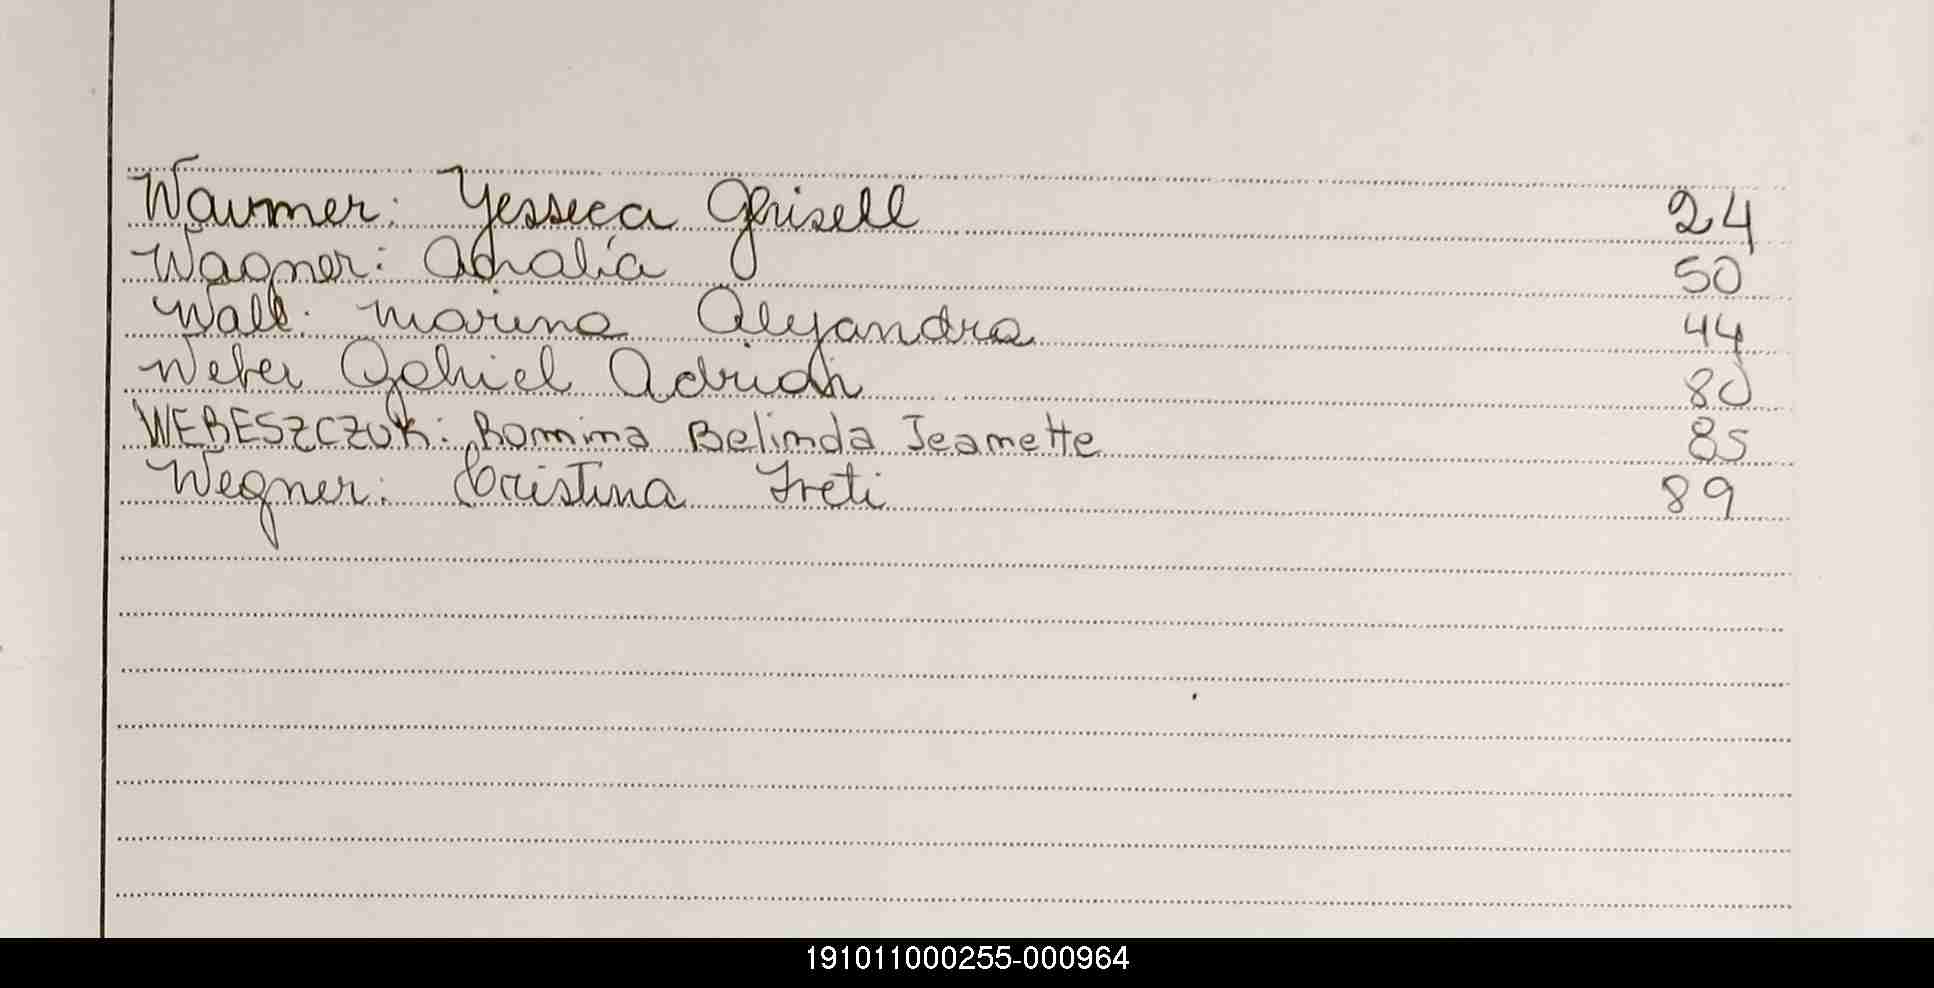 Waumer: Yessica Grisell 24
Wagner: Analía 50
Wall: Marina Alejandra 44
Weber Gabriel Adrian 80
WEBESZCZUK: Romina Belinda Jeanette 85
Wegner: Cristina Itati 89
191011000255-000964